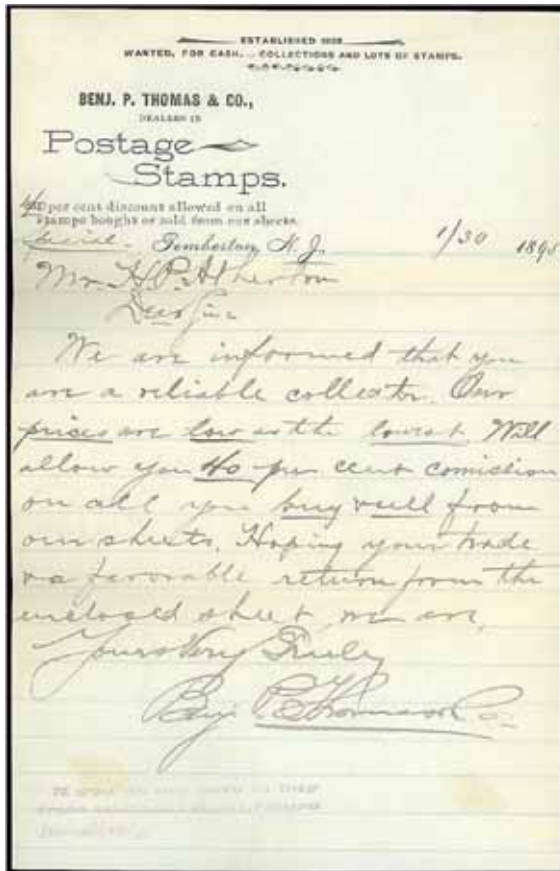 ESTABLISHED
WANTED, FOR CASH, COLLECTIONS AND LOTS OF STAMPS.
BENJ. P. THOMAS & CO.,
DEALERS IN
Postage
Stamps.
40 per cent discount allowed on all
stamps bought or sold from our sheets.
special. Pemberton, N. J. 1/30 1895
Mr. H. P. Atherton
Dear Sir
We are informed that you
are a reliable collector. Our
prices are low as the lowest. Will
allow you 40 per cent comission
on all you buy & sell from
our sheets. Hoping your trade
& a favorable return from the
enclosed sheet, we are,
Yours Very Truly
Benj. P. Thomas & Co.